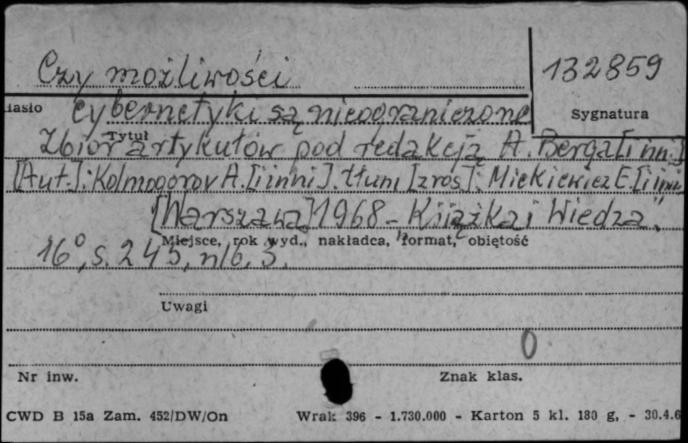 Czy możliwości
132859
iasło
cybernetyki są nieograniczone
Sygnatura
Tytuł
Zbiór artykułów pod redakcją A. Berga [i inn.]
[Aut.]: Kołmogorov A. [i inni]. tłum. [z ros]: Miekiewicz E. [i inni
[Warszawa] 1968 - "Książka i Wiedza".
Miejsce, rok wyd., nakładca, format, objętość
16°, s. 243, nlb. 5.
Uwagi
0
Nr inw.
Znak klas.
CWD B 15a Zam. 452/DW/On Wrak 396 - 1.730.000 - Karton 5 kl. 180 g, - 30.4.6